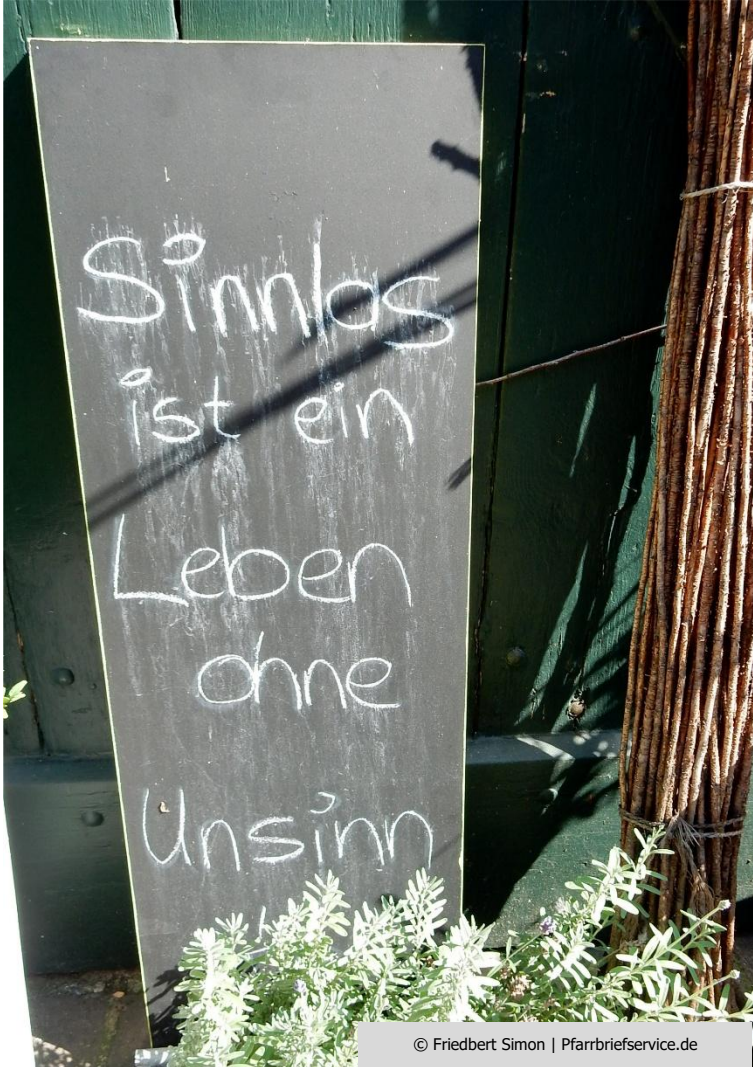 Sinnlos
ist ein
Leben
ohne
Unsinn
© Friedbert Simon | Pfarrbriefservice.de